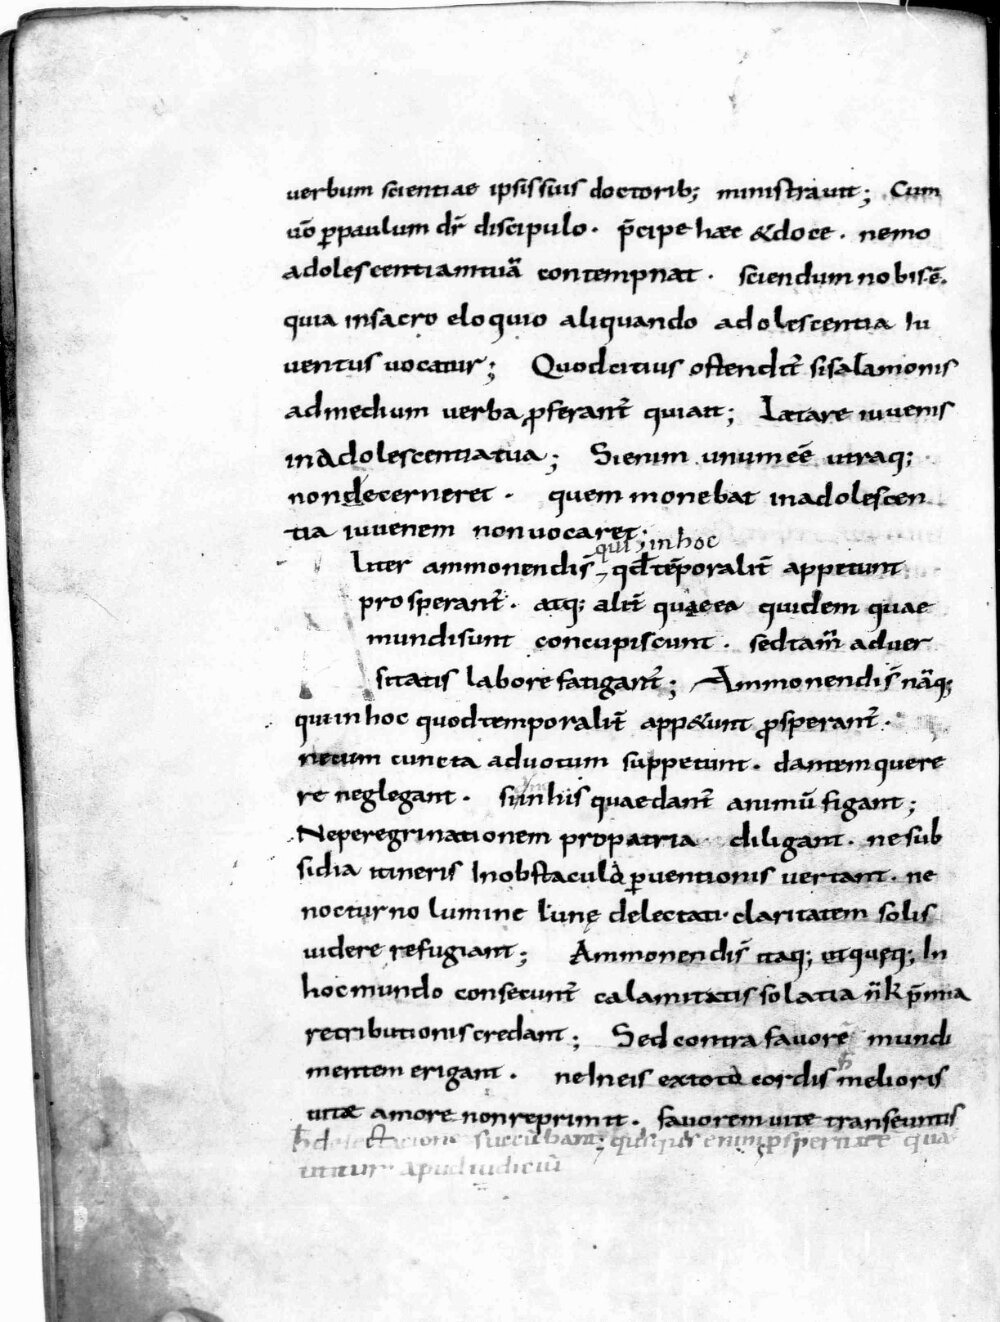 verbum scientiae ipsis suis doctorib; ministravit; Cum
vō p̲paulum dr̄ discipulo. p̄cipe haec &doce. nemo
adolescentiam tuā contempnat. sciendum nobis ē.
quia insacro eloquio aliquando adolescentia Iu
ventus vocatur; Quodcitius ostendit̄ sisalamonis
admedium verba p̲ferant̄ quiait; Laetare iuvenis
inadolescentiatua; Sienim unum eē utraq;
nondecerneret. quem monebat inadolescen
tia iuvenem nonvocaret;
qui inhoc
Inter ammonendis̄ qd̄ tēporalit̄ appetunt
prosperant̄. atq; alit̄ quae ea quidem quae
mundisunt concupiscunt. sedtam̄ adver
sitatis labore fatigant̄; Ammonendis̄ nāq;
qui inhoc quodtemporalit̄ app&unt p̲sperant̄.
necum cuncta advotum suppetunt. dantem quere
re neglegant. siinhis quaedant̄ animū figant;
Neperegrinationem propatria diligant. ne sub
sidia itineris Inobstaculo p̲ventionis vertant. ne
nocturno lumine lunę delectati. claritatem solis
videre refugiant; Ammonendis̄ itaq; ut quęq; In
hocmundo consecunt̄ calamitatis solatia n̄ p̄mia
retributionis credant; Sed contra favorē mundi
mentem erigant. neIneis extoto cordis melioris
vitae amore nonreprimit. favorem vite transeuntis
delectatione succūbant; quisquis enim p̲speritate qua
utitur apud iudiciū